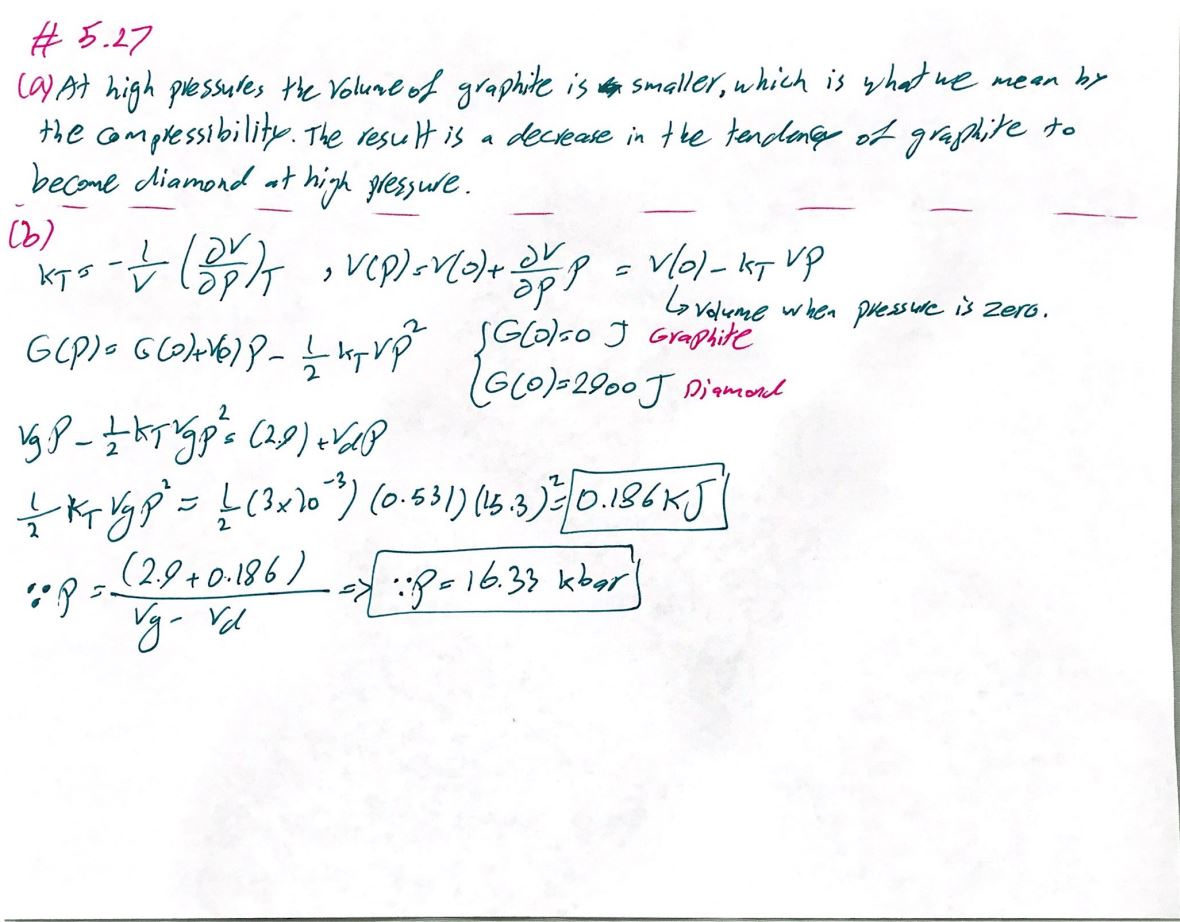 # 5.27
(a) At high pressures the volume of graphite is smaller, which is what we mean by
the compressibility. The result is a decrease in the tendency of graphite to
become diamond at high pressure.
(b)
kT = -1/V (∂V/∂P)T , V(P) = V(0) + ∂V/∂P P = V(0) - kT VP
↳ volume when pressure is zero.
G(P) = G(0) + V(0) P - 1/2 kT VP² { G(0) = 0 J Graphite
G(0) = 2900 J Diamond
Vg P - 1/2 kT Vg P² = (2.9) + Vd P
1/2 kT Vg P² = 1/2 (3x10⁻³) (0.531) (15.3)² = 0.186 KJ
∵ P = (2.9 + 0.186) / Vg - Vd => ∵ P = 16.33 kbar